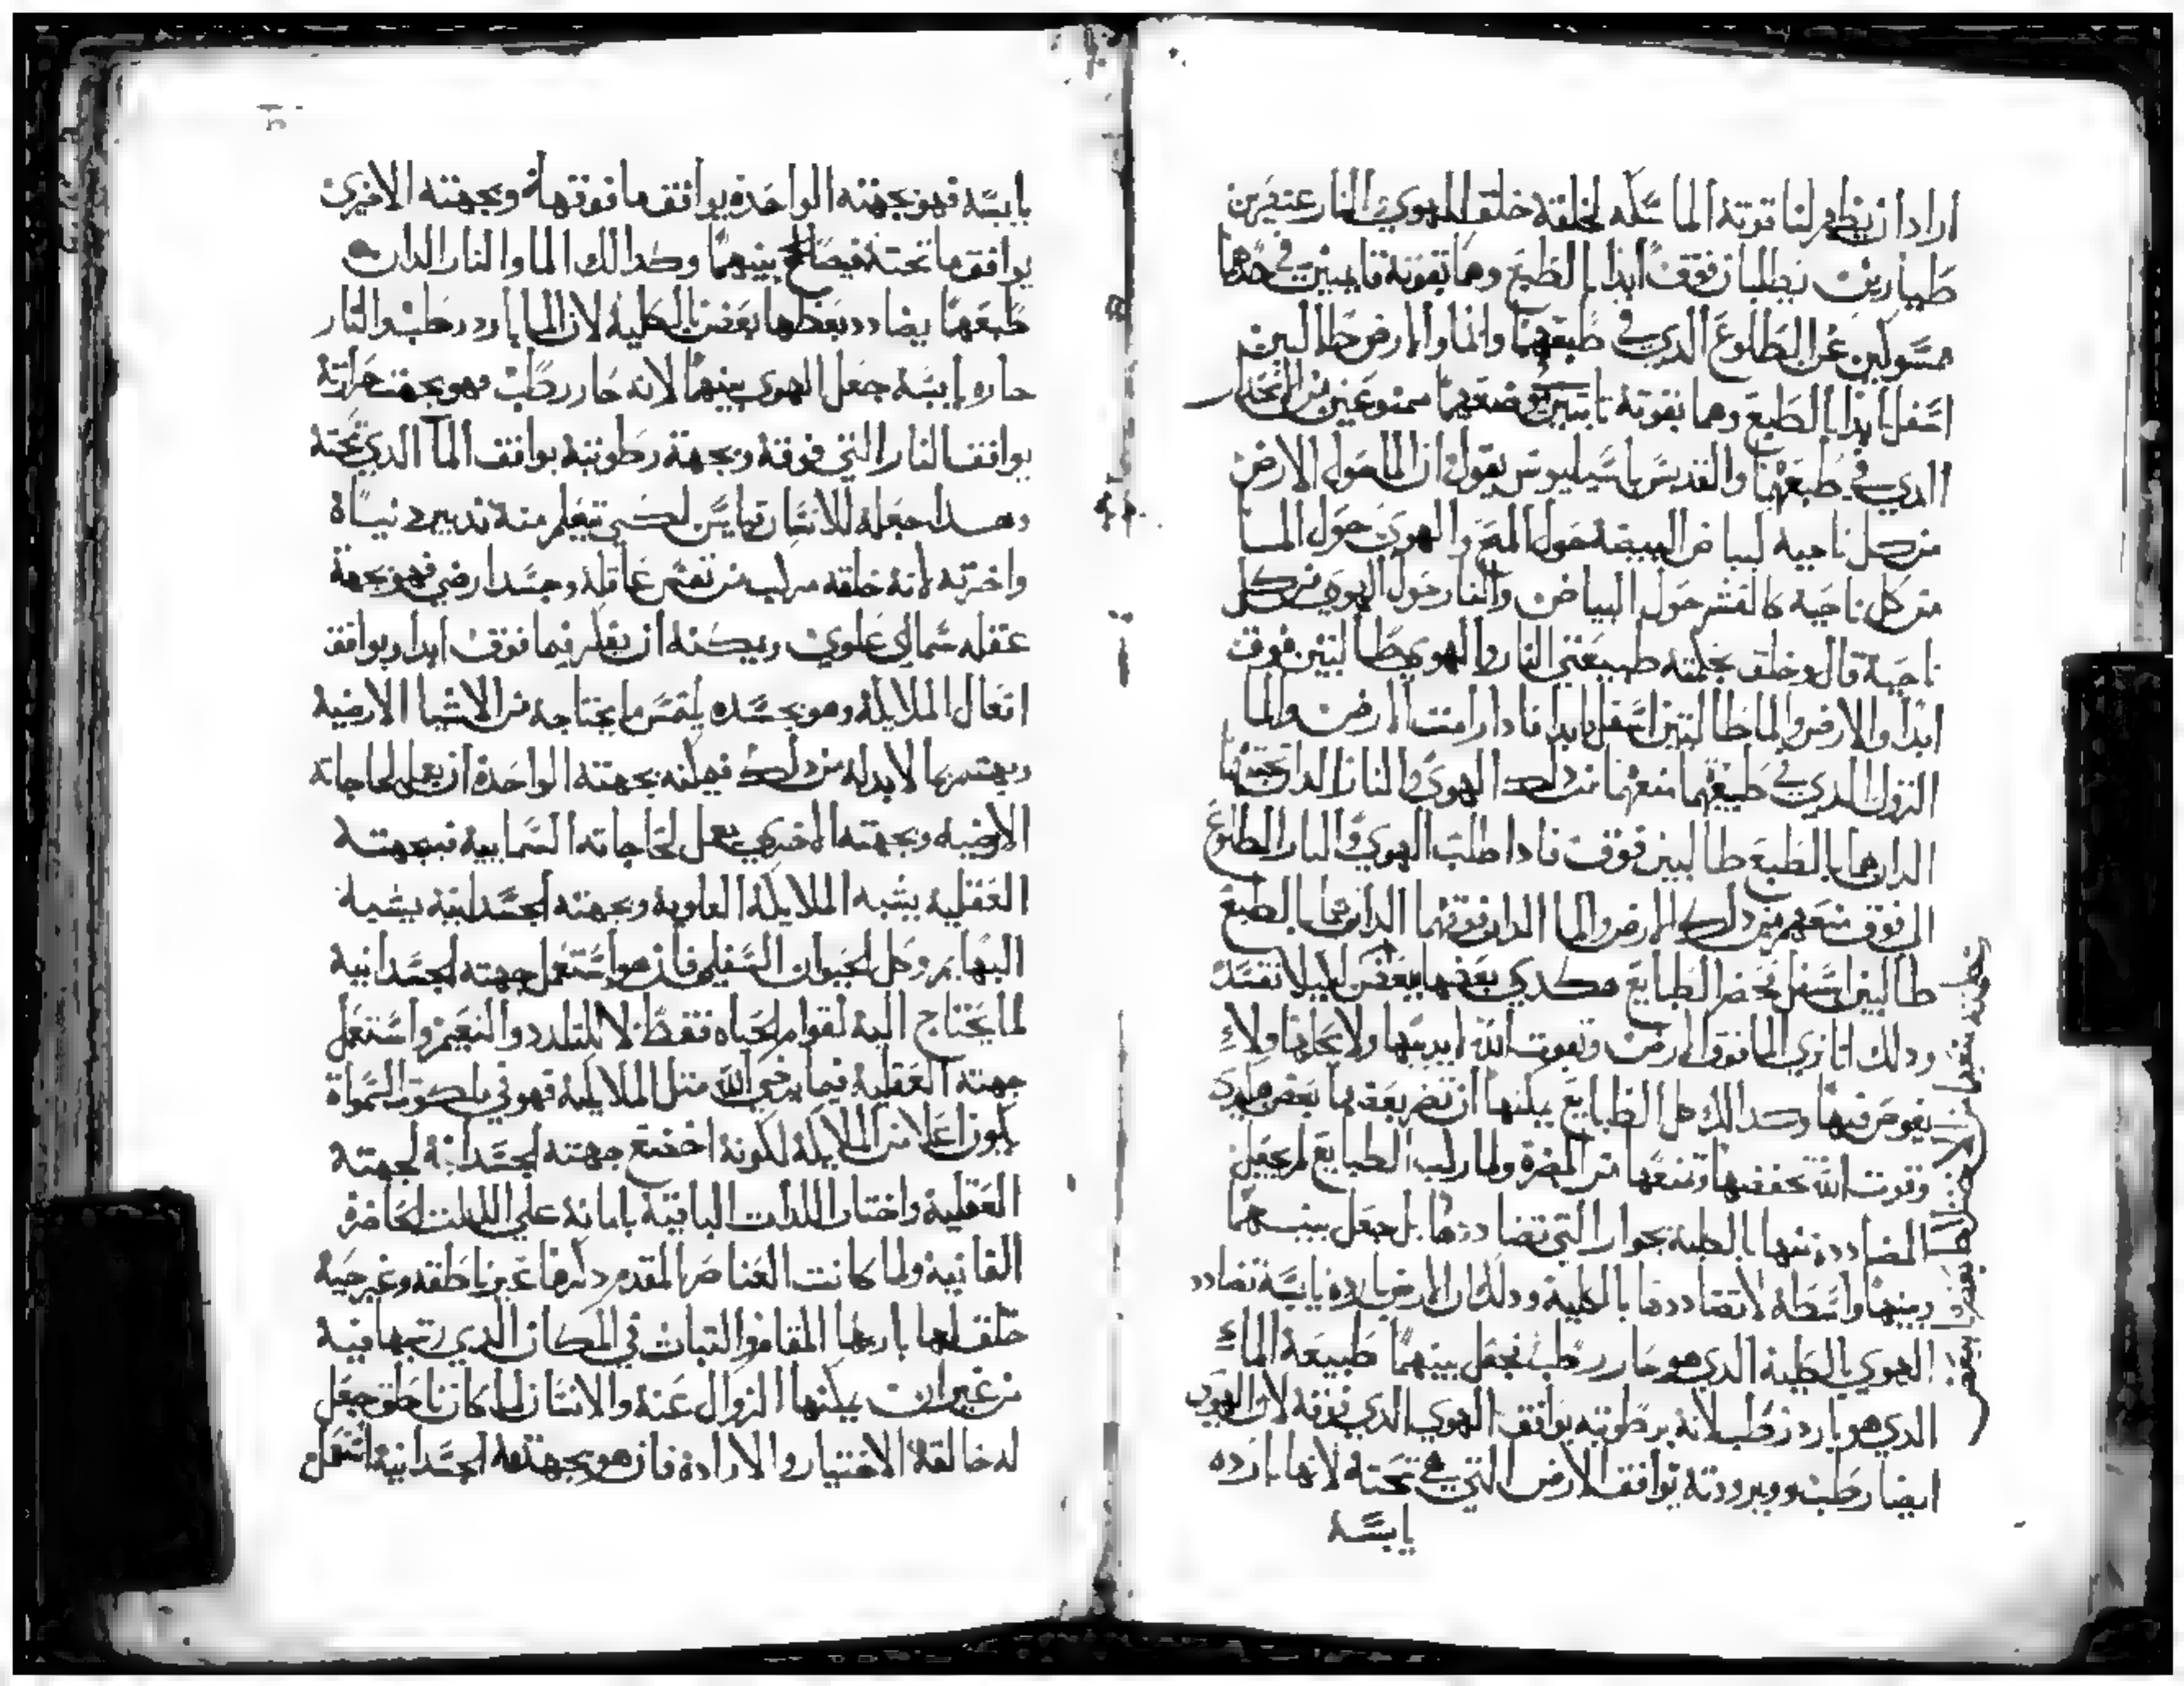 اراد ان يظهر لنا قوته الماسكه لخلقه خلق الهوي والنار عنصرين
طيارين يطلبان فوق ابدا بالطبع وهما بقوته تابتين في حدهما
ممسوكين عن الطلوع الدي في طبعهما والما والارض طالبين
اسفل ابدا بالطبع وهما بقوته تابتين موضعهما ممنوعين من الانحدار
الدي في طبعهما والقديس باسيليوس يقول ان الما حول الارض
من كل ناحيه كبياض البيضة حول المح والهوي حول المــا
من كل ناحية كالقشر حول البياض والنار حول الهوي من كل
ناحية قال وخلق بحكمته طبيعتي النار والهوي طالبتين فوق
ابدا والارض والما طالبتين اسفل ابدا فادا رامت الارض والما
النزول الدي في طبيعتهما منعهما من دلك الهوي والنار الدان تحتهما
الدان هما بالطبع طالبين فوق فادا طلب الهوي والنار الطلوع
الي فوق منعهم من دلك الارض والما الدان فوقهما الدان هما بالطبع
طالبين اسفل تحفض الطبايع هكدي بعضها بعض ليلا تفسد
ودلك انا نري الما فوق الارض وتقوت الله ايديها ولا يحلها ولا
يغوص فيها وكدالك كل الطبايع يمكنها ان تضر بعضها بعض
وقوت الله تحفضها وتمنعها من المضرة ولما ركب الطبايع لم يجعل
المضاددة منها بالكلية بجوار التي تضاددها بل جعل بينــهما
وبينها واسطة لا تضاددها بالكلية ودلك ان الارض بارده يابسة تضادد
الهوي بالكلية الدي هو حار رطب فجعل بينهما طبيعة الماء
الدي هو بارد رطب لانه برطوبته يوافق الهوي الدي فوقه لان الهوي
ايضا رطب وببرودته يوافق الارض التي هي تحته لانها بارده
يابسة
يابسة فهو بجهته الواحدة يوافق ما فوقها وبجهته الاخري
يوافق ما تحته فيصالح بينهما وكدالك الما والنار الدان
طبعهما يضادد بعضها بعض بالكلية لان الما بارد رطب والنار
حاره يابسة جعل الهوي بينهما لانه حار رطب فهو بجهة حرارته
يوافق النار التي فوقة وبجهة رطوبته يوافق الما الدي تحته
وهــدا جعله للانسان قياس لكــي يتعلم منه تدبير دنيــاه
واخرته لانه خلقه مركب من نفس عاقلة وجسد ارضي فهو بجهة
عقله سماي علوي ويمكنه ان يفكر فيما فوق ابدا ويوافق
افعال الملايكة وهو بجسده يلتمس ما يحتاجه من الاشيا الارضية
ويهتم بما لابد له من دلك فيمكنه بجهته الواحدة ان يعمل لحاجاته
الارضيه وبجهته الاخري يعمل لحاجاته السمايية فبجهتــه
العقلية يشبه الملايكة العلوية وبجهته الجسدانية يشبه
البهايم وكل الحيوان السفلي فان هو استعمل جهته الجسدانية
لما يحتاج اليه لقوام الحياه فقط لا للتلدد والنعيم واستعمل
جهته العقلية فيما يرضي الله متل الملايكة فهو في ملكوت السموات
يكون اعلا من الملايكة لكونه اخضع جهته الجسدانية لجهته
العقلية واختار اللدات الباقية بامانه علي اللدات الحاضرة
الفانية ولما كانت العناصر المقدم دكرها غير ناطقه وغير حية
خلق لها باريها المقام والتبات في المكان الدي رتبها فيه
من غير ان يمكنها الزوال عنه والانسان لما كان ناطق جعل
له خالقه الاختيار والارادة فان هو بجهته الجسدانية اشتغل